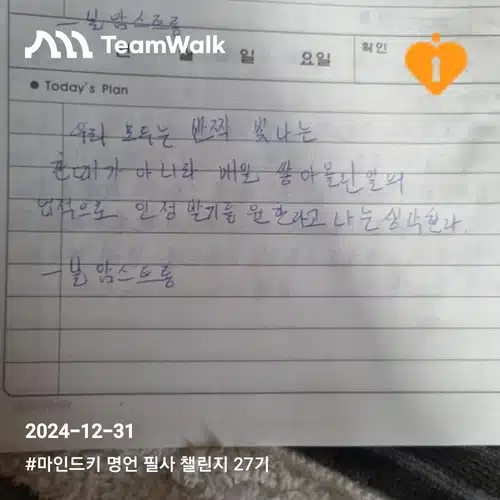 - 닐 암스트롱
TeamWalk
년 월 일 요일 확인
● Today's Plan
우리 모두는 반짝 빛나는
한때가 아니라 매일 쌓아올린 일의
업적으로 인정받기를 원한다고 나는 생각한다.
- 닐 암스트롱
2024-12-31
#마인드키 명언 필사 챌린지 27기